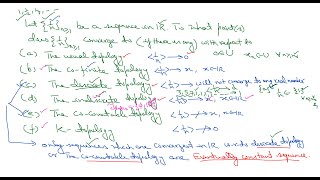 Let {1/n}n≥1 be a sequence in ℝ. To what point(s)
does {1/n}n≥1 converge to (if there is any) with respect to
(a) The usual topology <1/n> → 0
(b) The co-finite topology <1/n> → x, x∈ℝ
(c) The discrete topology <1/n> → will not converge to any real number
(d) The indiscrete topology <1/n> → x, x∈ℝ
(e) The co-countable topology <1/n>
(f) K-topology <1/n>
only sequences that are convergent in ℝ w.r.to discrete topology
or The co-countable topology are Eventually constant sequence.